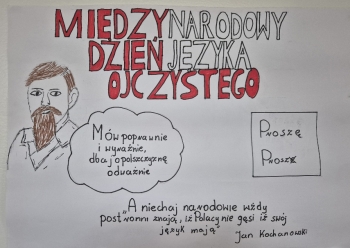 MIĘDZYNARODOWY
DZIEŃ JĘZYKA
OJCZYSTEGO
Mów poprawnie
i wyraźnie,
dbaj o polszczyznę
odważnie
Proszę
Proszę
„A niechaj narodowie wżdy
postronni znają, iż Polacy nie gęsi iż swój
język mają"
Jan Kochanowski